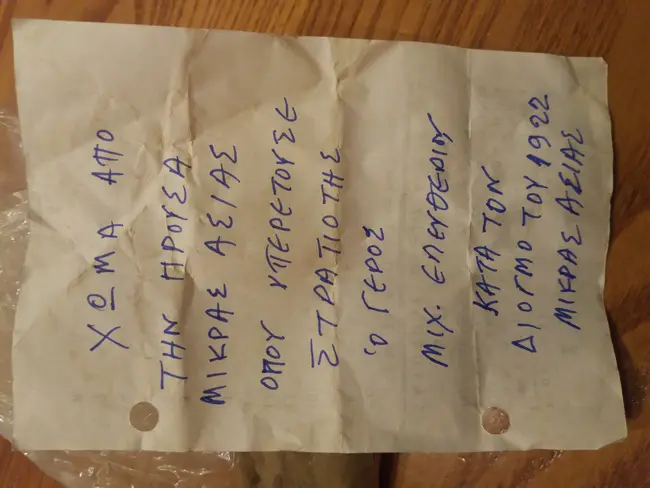 ΧΩΜΑ ΑΠΟ
ΤΗΝ ΠΡΟΥΣΑ
ΜΙΚΡΑΣ ΑΣΙΑΣ
ΟΠΟΥ ΥΠΕΡΕΤΟΥΣΕ
ΣΤΡΑΤΙΟΤΗΣ
Ό ΓΕΡΟΣ
ΜΙΧ. ΕΛΕΥΘΕΡΙΟΥ
ΚΑΤΑ ΤΟΝ
ΔΙΟΓΜΟ ΤΟΥ 1922
ΜΙΚΡΑΣ ΑΣΙΑΣ